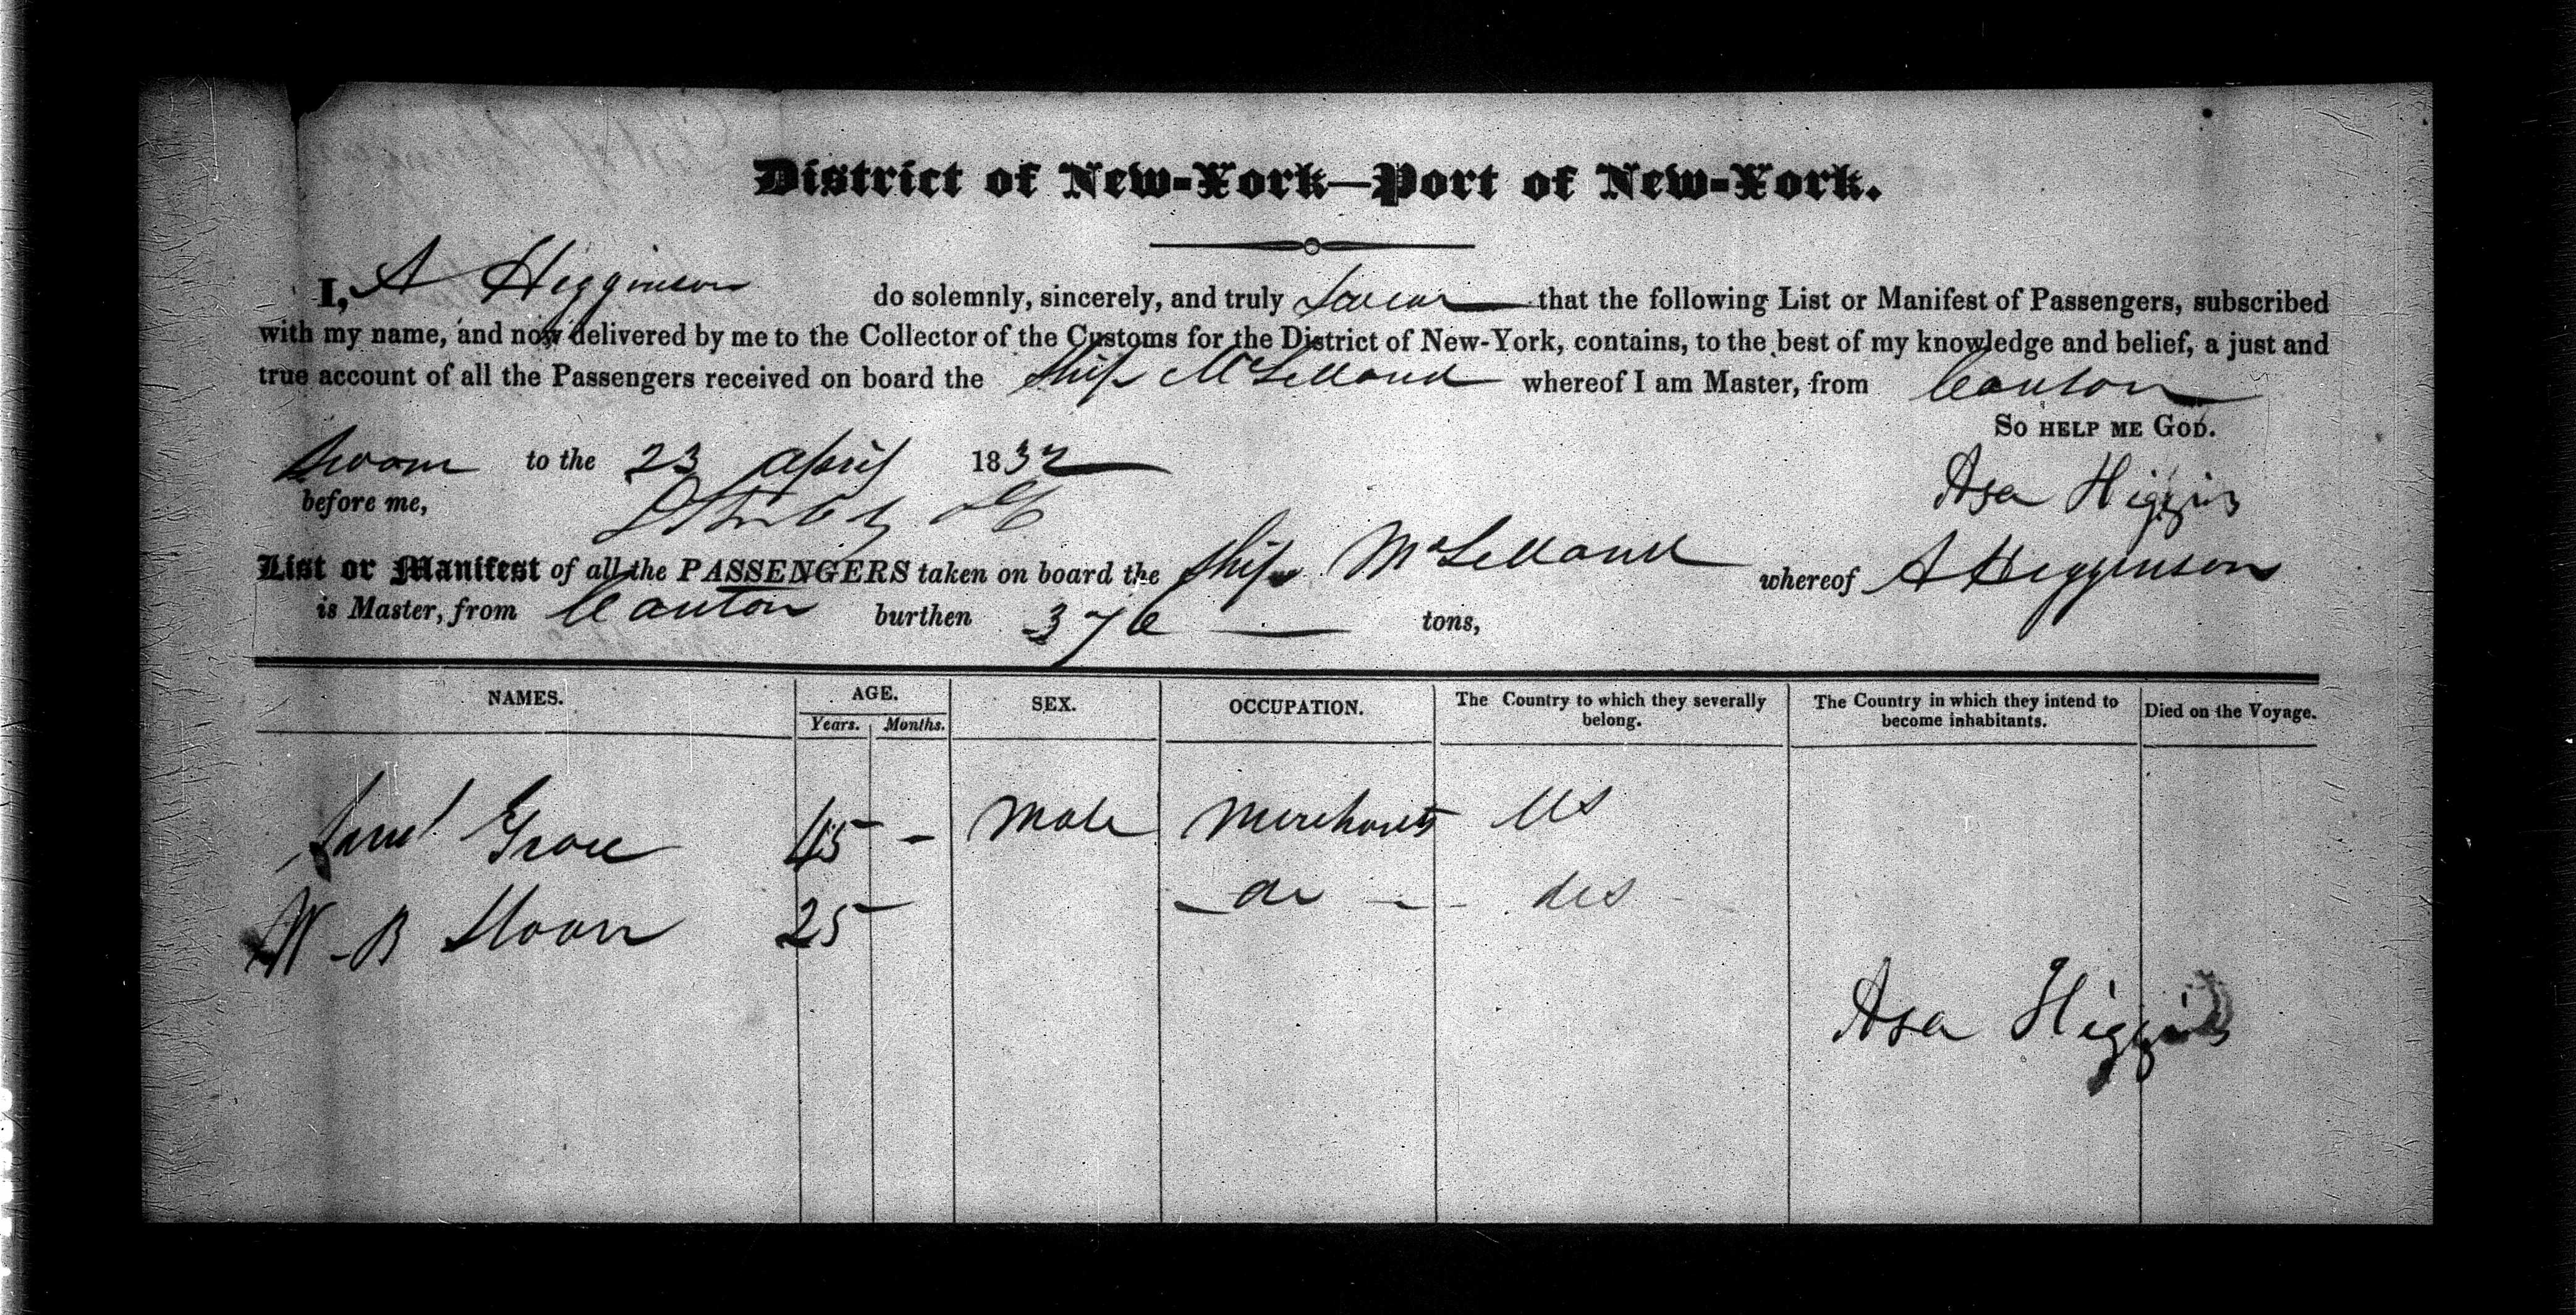 District of New-York—Port of New-York.
I, A Higginson do solemnly, sincerely, and truly Swear that the following List or Manifest of Passengers, subscribed
with my name, and now delivered by me to the Collector of the Customs for the District of New-York, contains, to the best of my knowledge and belief, a just and
true account of all the Passengers received on board the Ship McLelland whereof I am Master, from Canton
So help me God.
Sworn to the 23 April 1832
Asa Higgins
before me,
List or Manifest of all the PASSENGERS taken on board the Ship McLelland whereof A Higginson
is Master, from Canton burthen 376 tons,
NAMES. AGE. SEX. OCCUPATION. The Country to which they severally belong. The Country in which they intend to become inhabitants. Died on the Voyage.
Years. Months.
Saml Grace 45 - Male Merchants US
W B Sloan 25 - do -
Asa Higgins